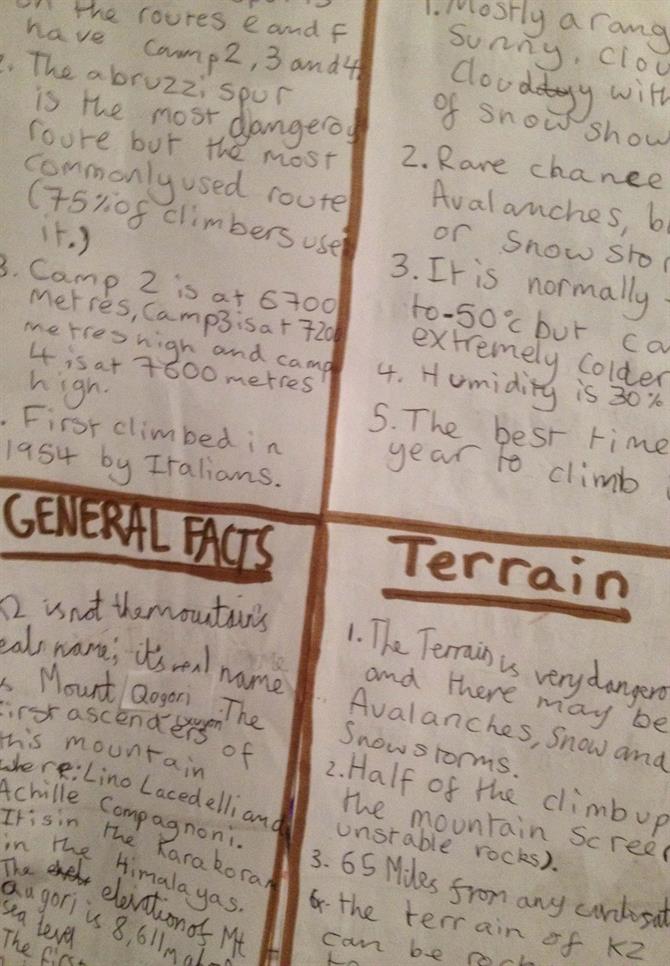 the routes e and f
have camp 2, 3 and 4.
The abruzzi spur
is the most dangerou
route but the most
commonly used route
(75% of climbers use
it.)
3. Camp 2 is at 6700
metres, Camp 3 is at 7200
metres high and camp
4 is at 7600 metres
high.
. First climbed in
1954 by Italians.
1. Mostly a rang
Sunny, clou
Clouddyy with
of snow show
2. Rare chance
Avalanches, b
or snow sto
3. It is normally
to -50°c but ca
extremely colder
4. Humidity is 30%
5. The best time
year to climb
GENERAL FACTS
K2 is not the mountain's
eals name; it's real name
s Mount Qogori The
first ascenders of
this mountain
where: Lino Lacedelli and
Achille Compagnoni.
It is in the Karakoram
in the Himalayas.
The elevation of Mt
Qougori is 8,611m
sea level
The firs
Terrain
1. The Terrain is very dangero
and there may be
Avalanches, Snow and
Snowstorms.
2. Half of the climb up
the mountain Scree(
unstable rocks).
3. 65 Miles from any
the terrain of K2
can be rock
to